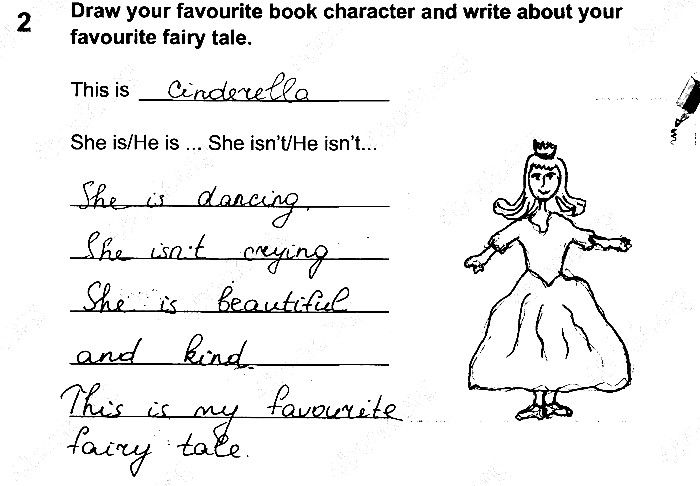 2
Draw your favourite book character and write about your
favourite fairy tale.
This is Cinderella
She is/He is ... She isn't/He isn't...
She is dancing.
She isn't crying
She is beautiful
and kind.
This is my favourite
fairy tale.